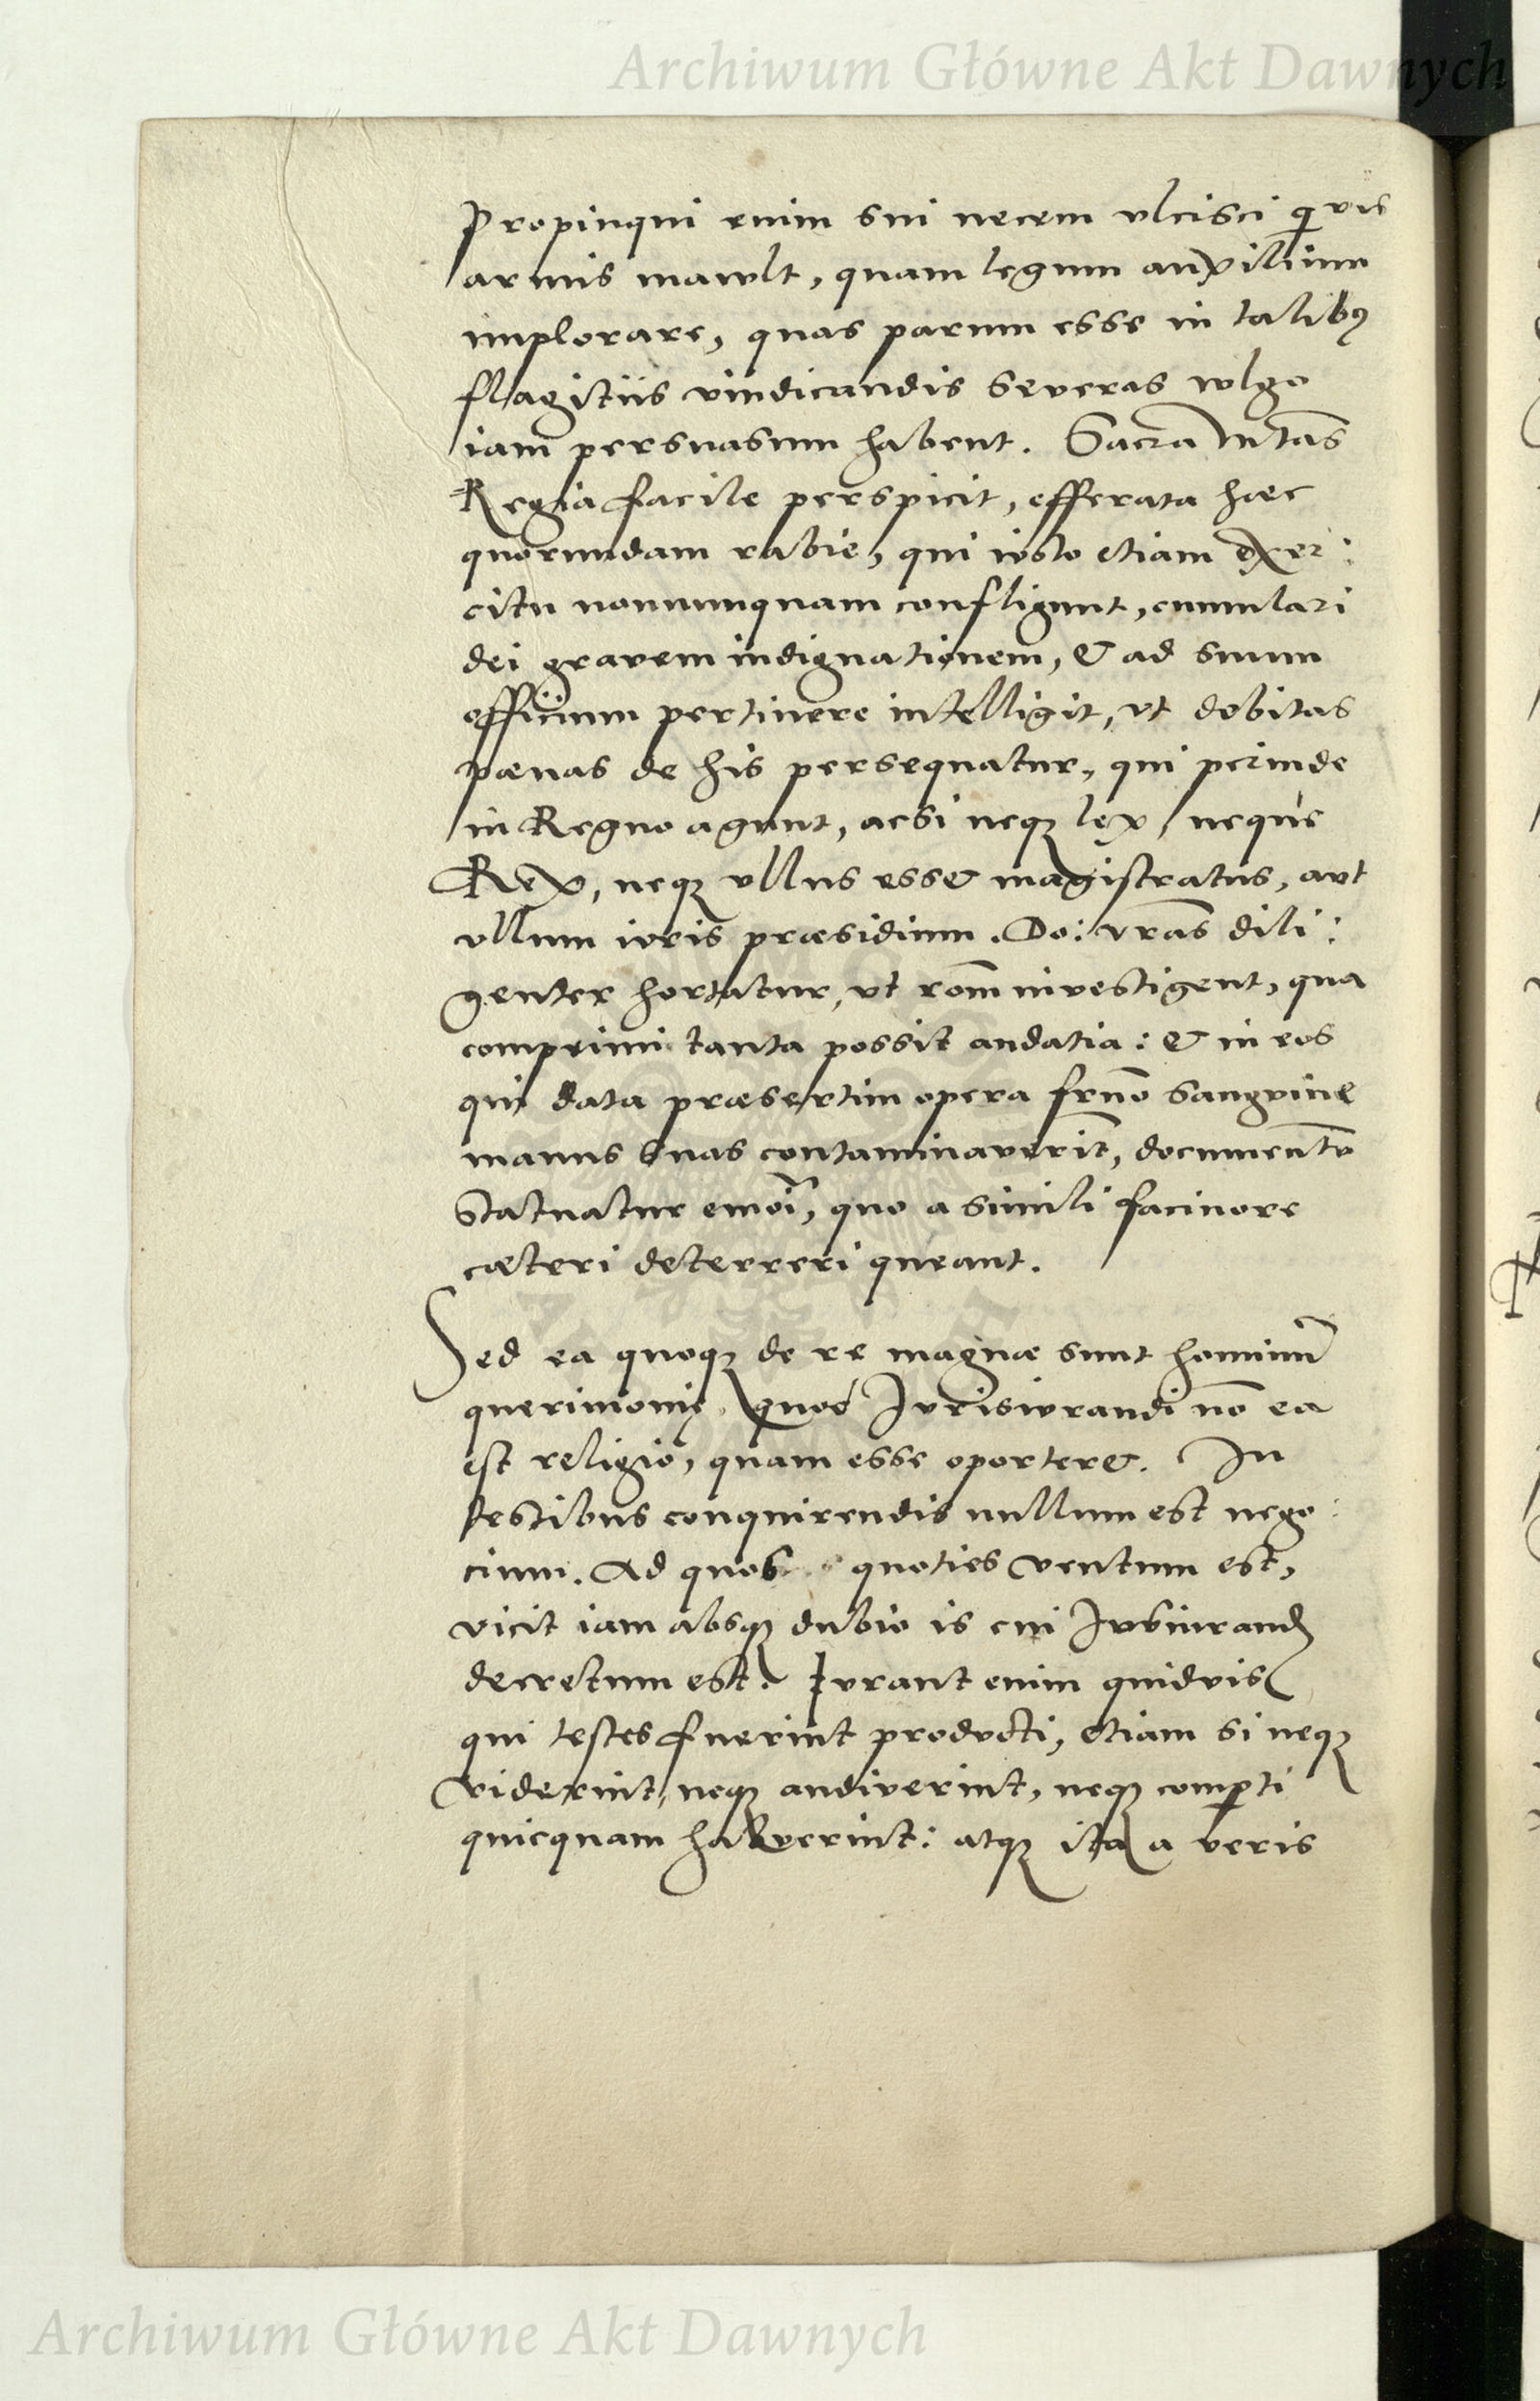 Archiwum Główne Akt Dawnych
Propinqui enim sui necem vlcisci qͥvis
armis mawlt, quam legum auxilium
implorare, quas parum esse in talibꝰ
flagitiis vindicandis severas wlgo
iam persuasum habent. Sacra Mt̄as
Regia facile perspicit, efferata hac
quorundam rabie, qui iusto etiam exer:
citu nonnunquam confligunt, cumulari
dei gravem indignationem, & ad suum
officium pertinere intelligit, vt debitas
pœnas de his persequatur, qui perinde
in Regno agunt, acsi neqꝫ lex, neque
Rex, neqꝫ vllus esset magistratus, aut
vllum iuris præsidium. Do: vr̄as dili:
genter hortatur, vt rom̄ investigent, qua
comprimi tanta possit audatia: & in eos
qui data præsertim opera frn̄o sanguine
manus suas contaminaverīt, documentū
statuatur emoī, quo a simili facinore
cæteri deterreri queant.
Sed ea quoqꝫ de re magnæ sunt hominū
querimonię, quod Iurisiurandi nō ea
est religio, quam esse oporteret. In
testibus conquirendis nullum est nego:
cium. Ad quos quoties ventum est,
vicit iam absqꝫ dubio is cui Iusiurand
decretum est. Iurant enim quidvis
qui testes fuerint producti, etiam si neqꝫ
viderint, neqꝫ audiverint, neqꝫ comꝑti
quicquam habuerint: atqꝫ ita a veris
Archiwum Główne Akt Dawnych